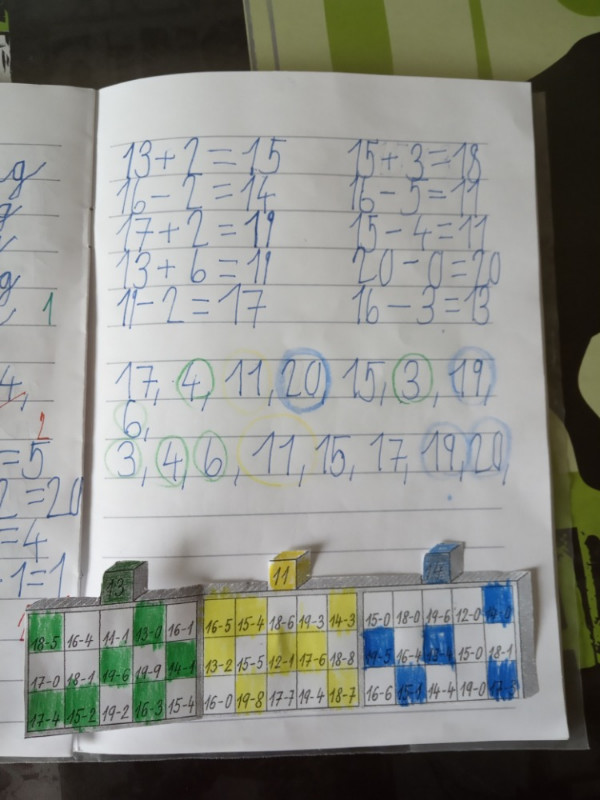 1
4,
2
=5
2=20
=4
·1=1
13+2=15 15+3=18
16-2=14 16-5=11
17+2=19 15-4=11
13+6=19 20-0=20
19-2=17 16-3=13
17, 4, 11, 20, 15, 3, 19,
6,
3, 4, 6, 11, 15, 17, 19, 20,
13 11 14
18-5 16-4 11-1 13-0 16-1 16-5 15-4 18-6 19-3 14-3 15-0 18-0 19-6 12-0 14-0
17-0 18-1 19-6 19-9 14-1 13-2 15-5 12-1 17-6 18-8 19-5 16-4 18-4 15-0 18-1
17-4 15-2 19-2 16-3 15-4 16-0 19-8 17-7 19-4 18-7 16-6 15-1 14-4 19-0 17-3